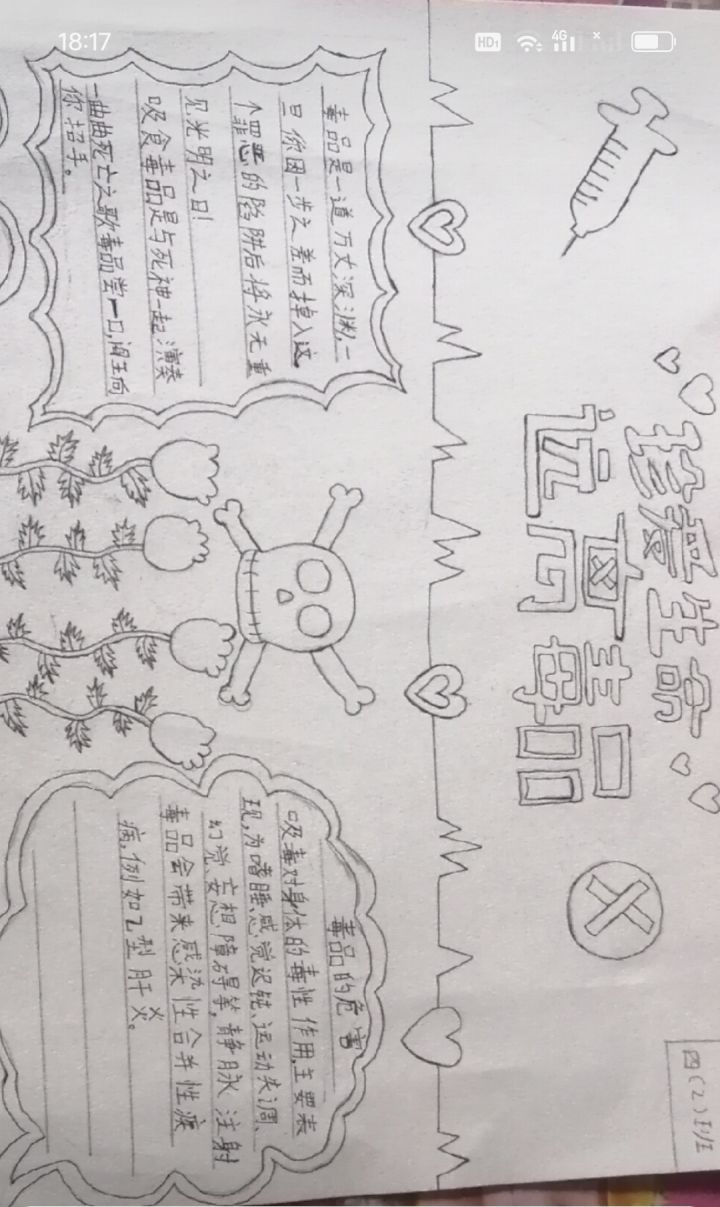 18:17
HD1
4G
四(2)班
珍爱生命
远离毒品
毒品是一道万丈深渊,一
旦你因一步之差而掉入这
个罪恶的陷阱后将永无重
见光明之日!
吸食毒品是与死神一起演奏
一曲曲死亡之歌毒品尝一口,阎王向
你招手。
毒品的危害
吸毒对身体的毒性作用,主要表
现为嗜睡、感觉迟钝、运动失调、
幻觉、妄想、障碍等,静脉注射
毒品会带来感染性合并性
病,例如乙型肝炎。